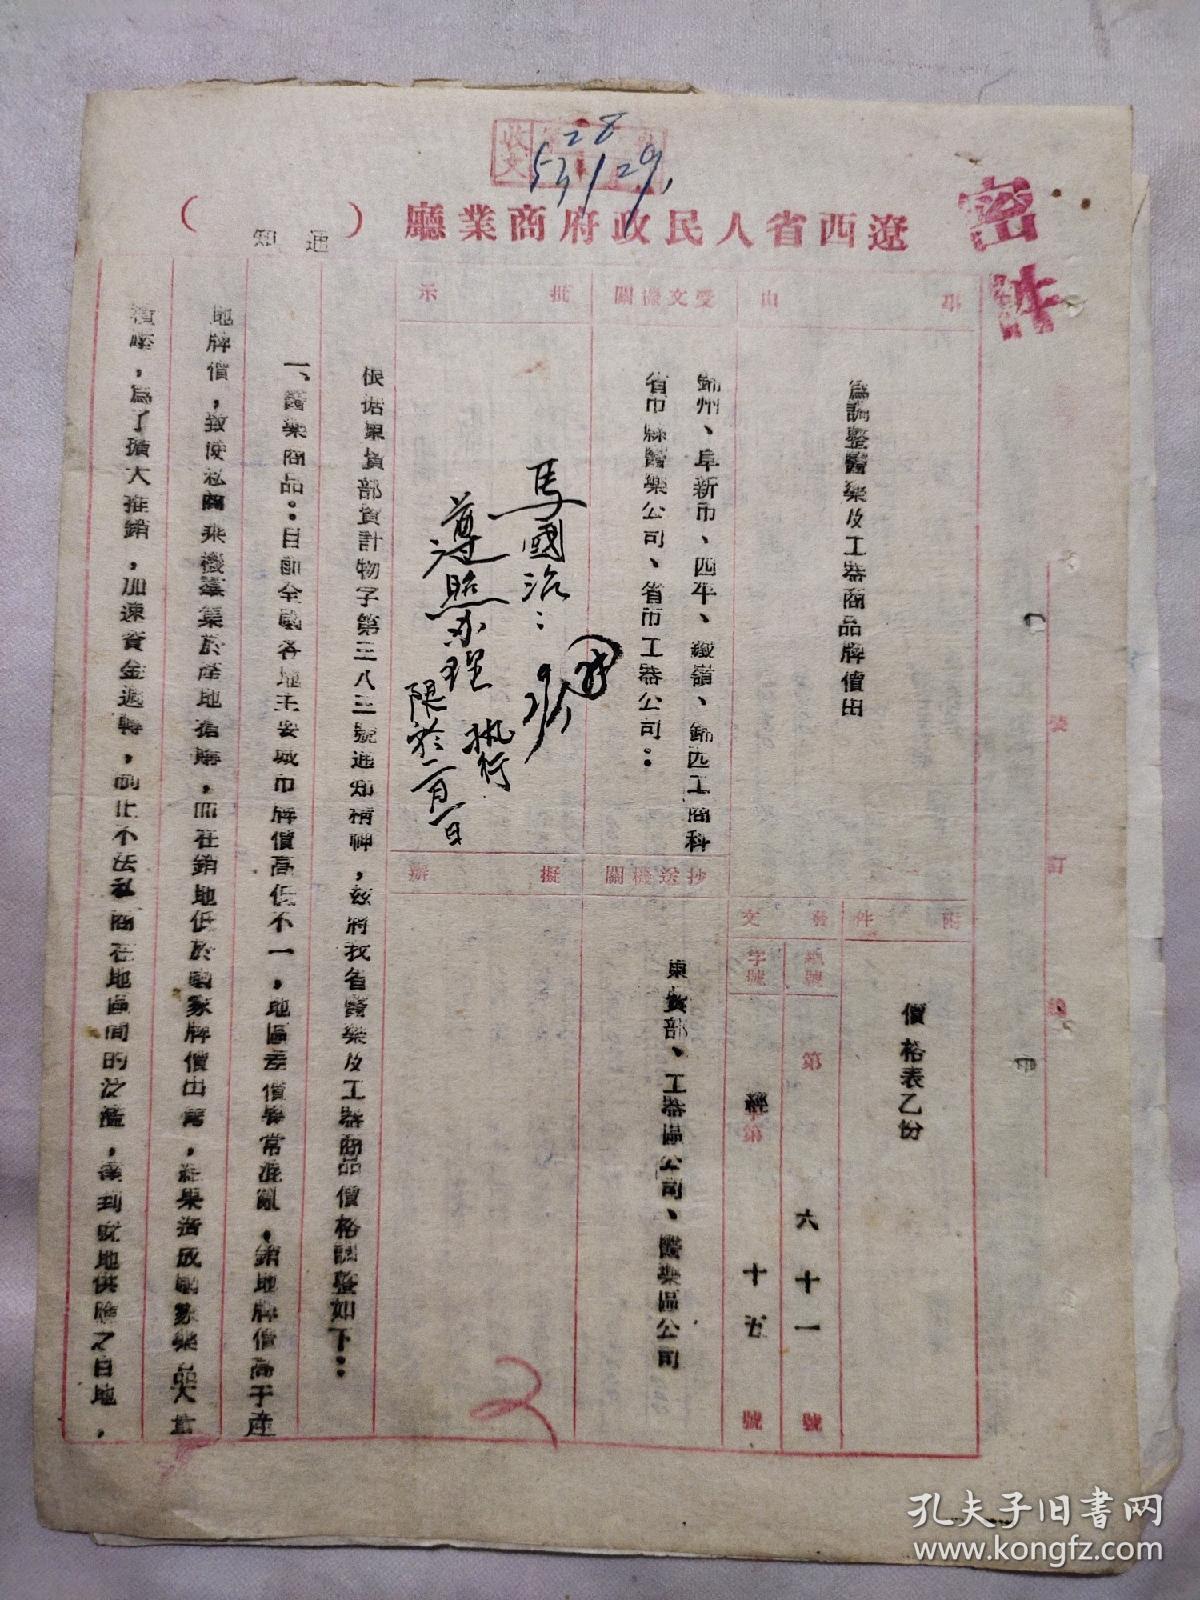 密件
收文
28
53/1/29,
遼西省人民政府商業廳（通知）
事由
為調整醫藥及工器商品牌價由
受文機關
錦州、阜新市、四平、鐵嶺、錦西工商科
省市縣醫藥公司、省市工器公司：
批示
馬國治：
遵照办理
执行
限於二月一日
附件
價格表乙份
發文
總號
第六十一號
字號
字第十五號
抄送機關
東貿部、工器區公司、醫藥區公司
擬辦
依據東貿部貿計物字第三八三號通知精神，茲將我省醫藥及工器商品價格調整如下：
一、醫藥商品：目前全國各地主要城市牌價高低不一，地區差價異常混亂，銷地牌價高于產
地牌價，致使私商乘機集於產地搶購，而在銷地低於國家牌價出售，結果造成國家藥品大量
積壓，為了擴大推銷，加速資金週轉，制止不法私商在地區間的泛濫，達到就地供應之目地，
2
裝
訂
線
孔夫子旧书网
www.kongfz.com